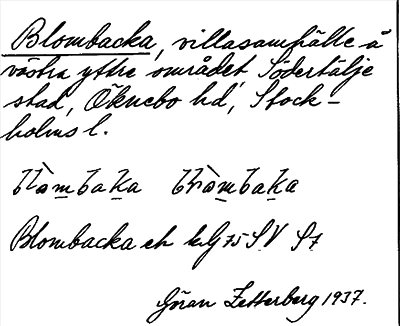 Blombacka, villasamhälle å
västra yttre området, Södertälje
stad, Öknebo hd, Stock-
holms l.
Blombacka ek bl G 75 SV S7
Göran Zetterberg 1937.